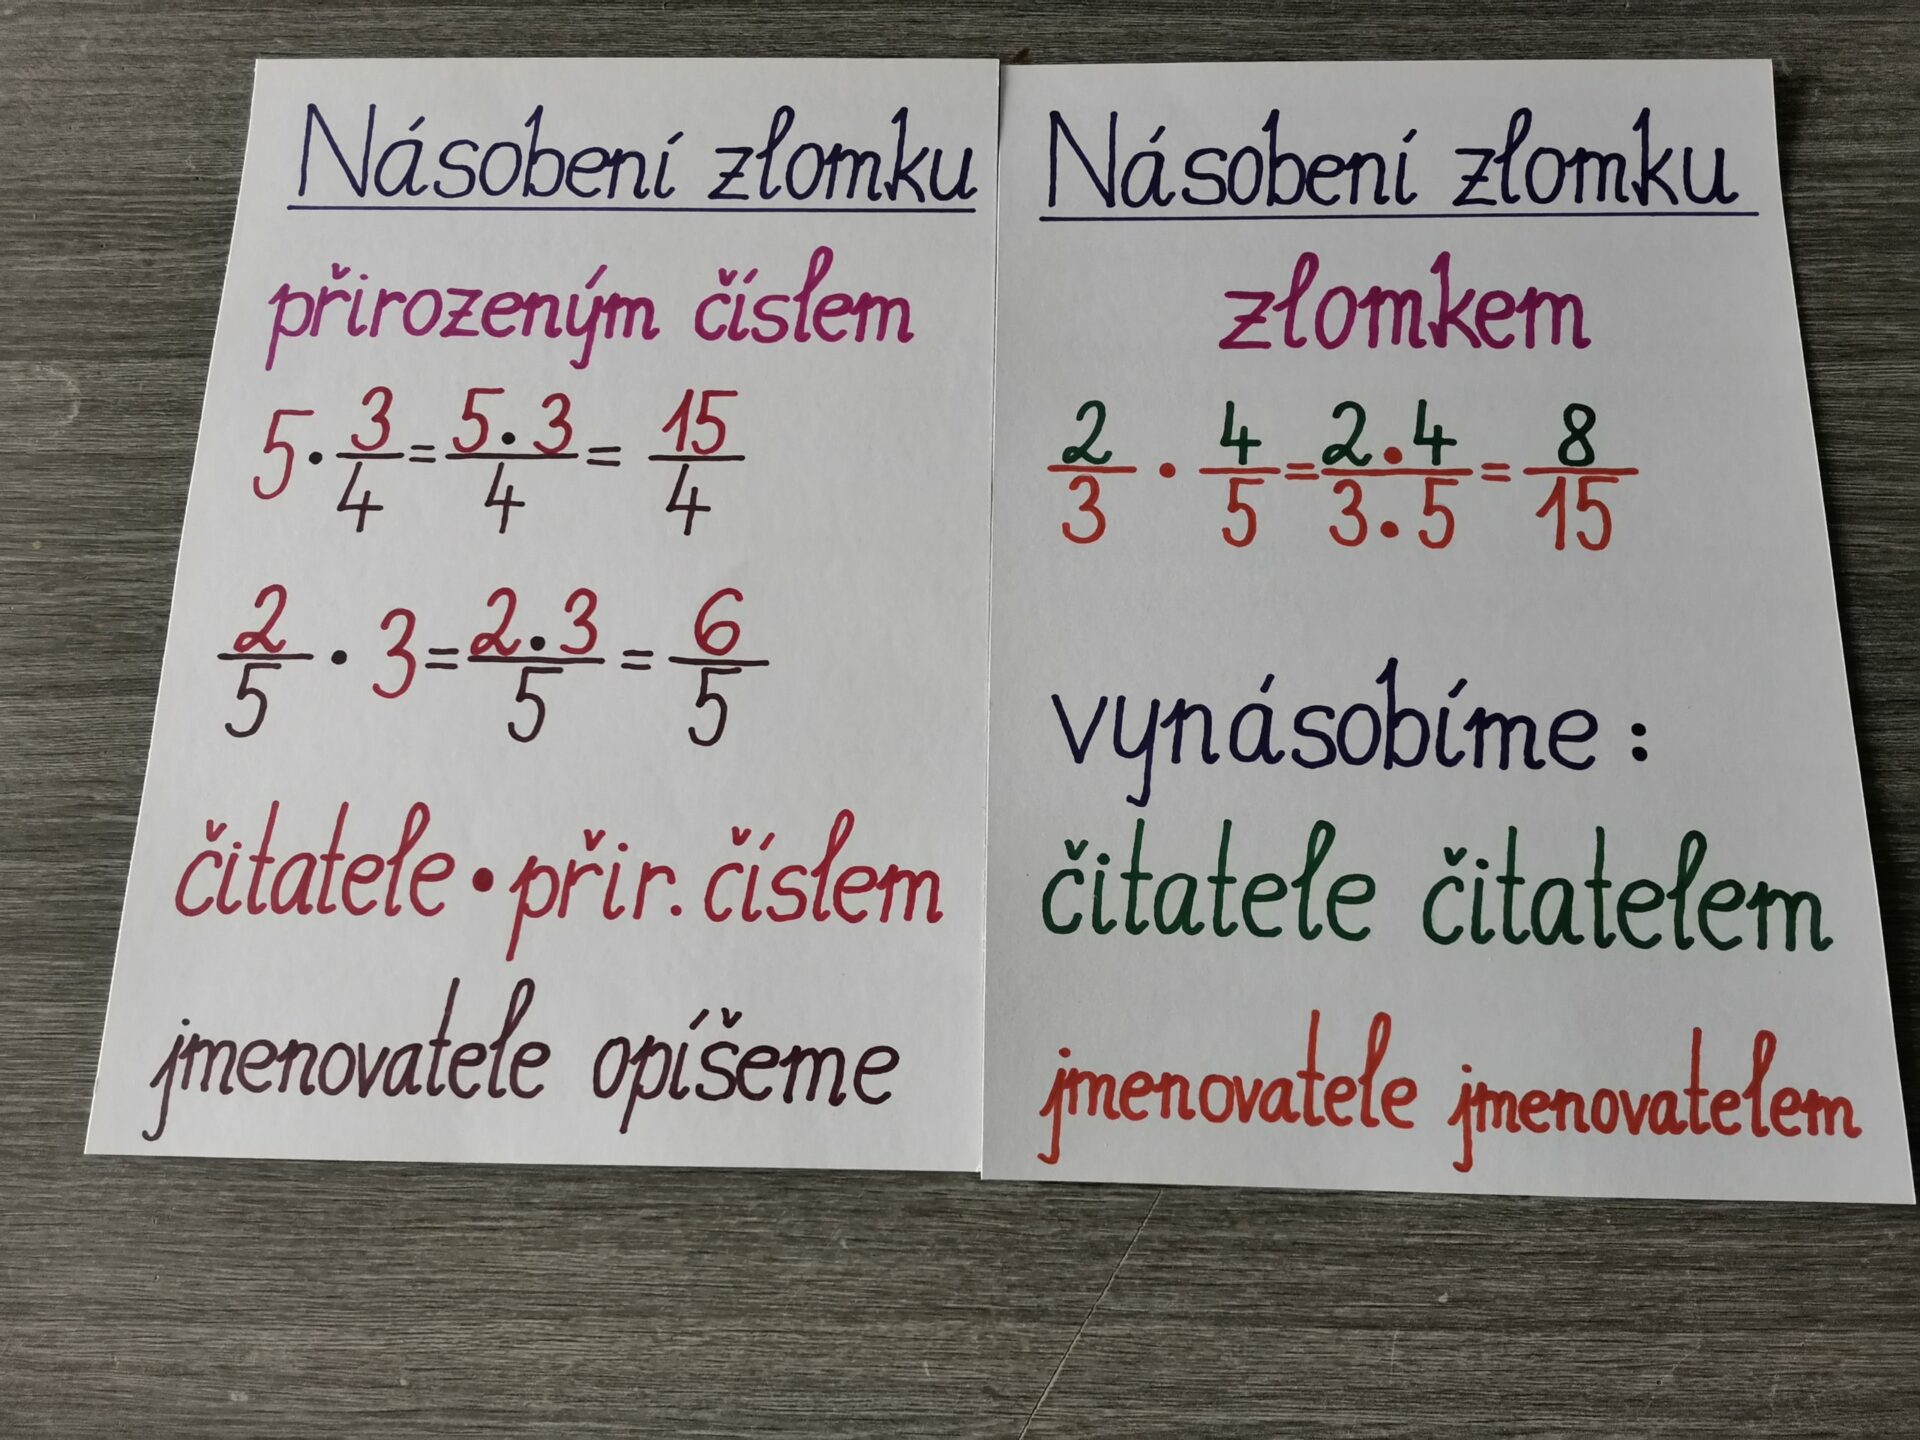 Násobení zlomku
přirozeným číslem
5 · 3/4 = 5·3/4 = 15/4
2/5 · 3 = 2·3/5 = 6/5
čitatele · přir. číslem
jmenovatele opíšeme
Násobení zlomku
zlomkem
2/3 · 4/5 = 2·4/3·5 = 8/15
vynásobíme :
čitatele čitatelem
jmenovatele jmenovatelem